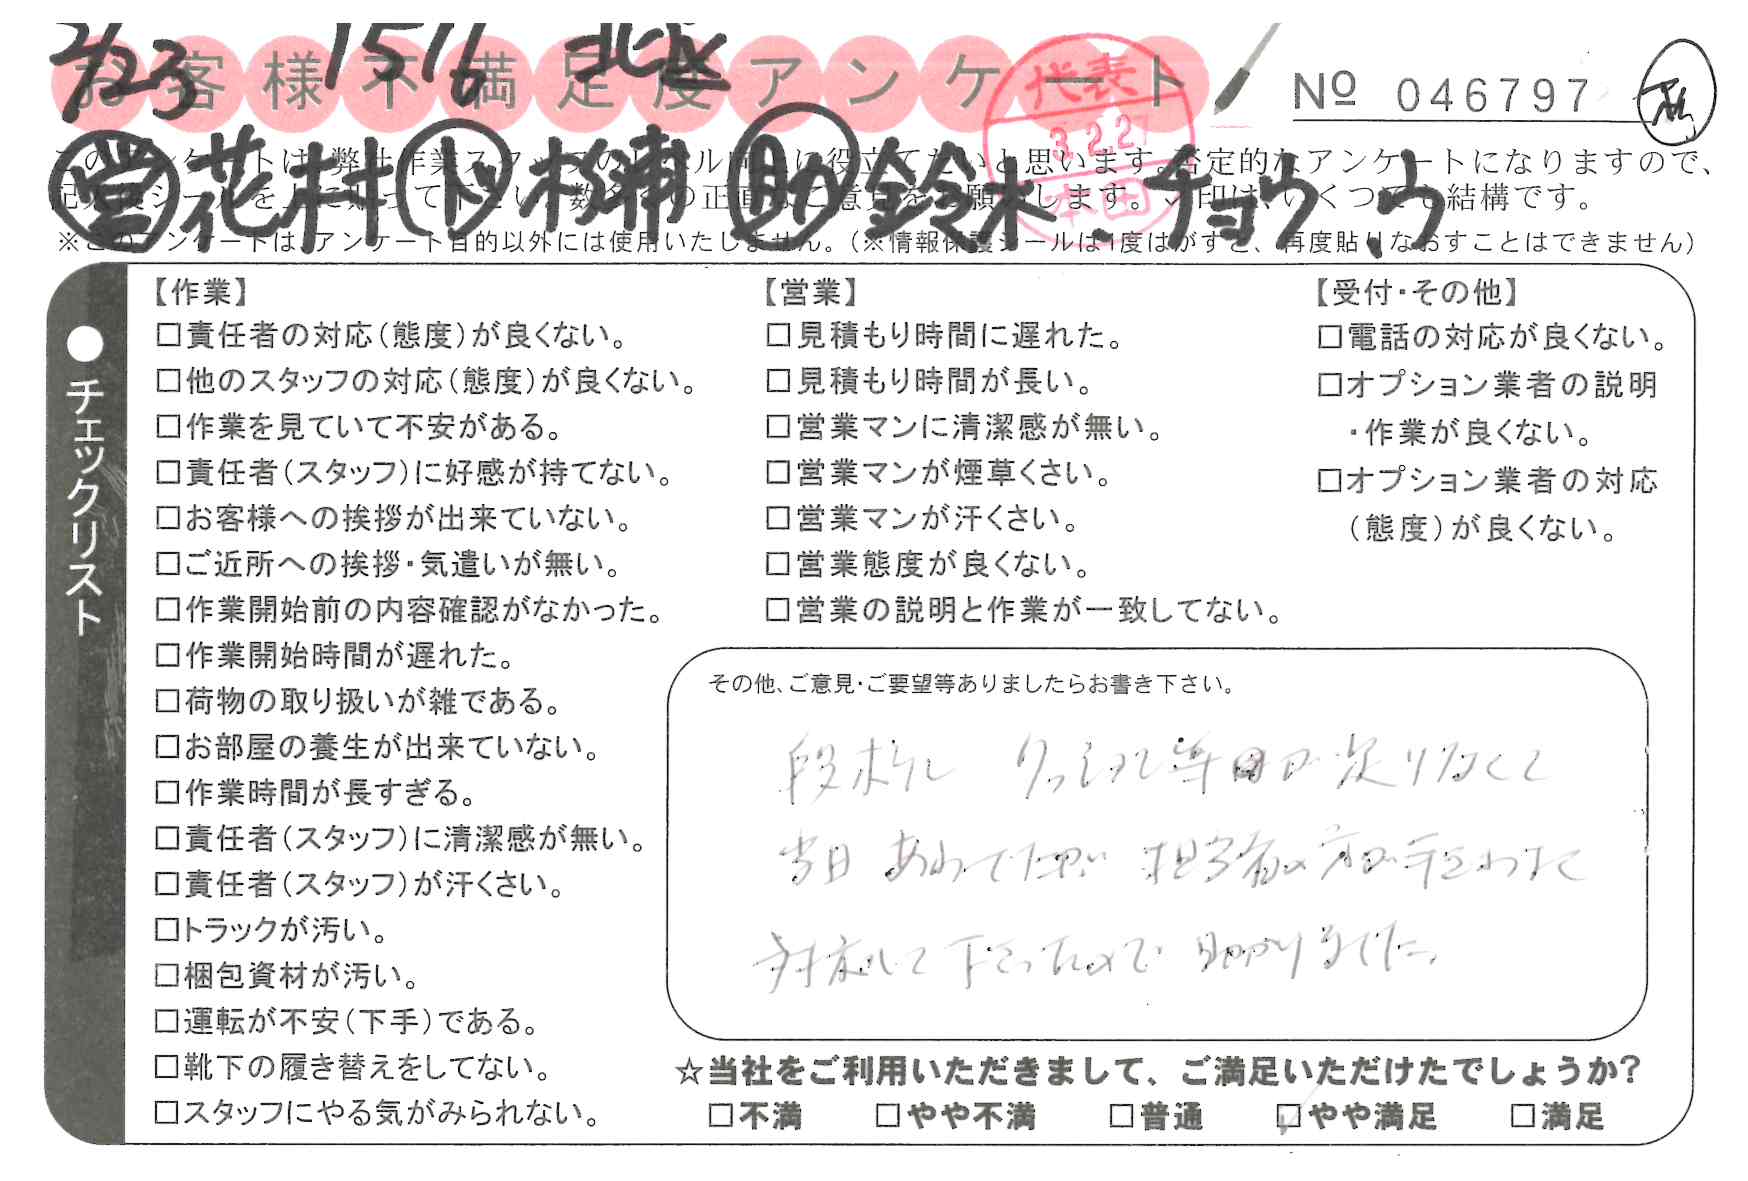 2/23 1516 北区
お客様不満足度アンケート
No 046797
代表
3.2.27
本田
営 花村 ト 松浦 助 鈴木、チョウ、ウ
このアンケートは、弊社作業スタッフのレベル向上に役立てたいと思います。否定的なアンケートになりますので、
記入後シールを上に貼って下さい。数多くの正直なご意見をお願いします。✓印は、いくつでも結構です。
※このアンケートは、アンケート目的以外には使用いたしません。(※情報保護シールは1度はがすと、再度貼りなおすことはできません)
●チェックリスト
【作業】
□責任者の対応(態度)が良くない。
□他のスタッフの対応(態度)が良くない。
□作業を見ていて不安がある。
□責任者(スタッフ)に好感が持てない。
□お客様への挨拶が出来ていない。
□ご近所への挨拶・気遣いが無い。
□作業開始前の内容確認がなかった。
□作業開始時間が遅れた。
□荷物の取り扱いが雑である。
□お部屋の養生が出来ていない。
□作業時間が長すぎる。
□責任者(スタッフ)に清潔感が無い。
□責任者(スタッフ)が汗くさい。
□トラックが汚い。
□梱包資材が汚い。
□運転が不安(下手)である。
□靴下の履き替えをしてない。
□スタッフにやる気がみられない。
【営業】
□見積もり時間に遅れた。
□見積もり時間が長い。
□営業マンに清潔感が無い。
□営業マンが煙草くさい。
□営業マンが汗くさい。
□営業態度が良くない。
□営業の説明と作業が一致してない。
【受付・その他】
□電話の対応が良くない。
□オプション業者の説明
・作業が良くない。
□オプション業者の対応
(態度)が良くない。
その他、ご意見・ご要望等ありましたらお書き下さい。
段ボール
が足りなくて
当日あわてた 担当者の方が手伝って
対応して下さったので助かりました。
☆当社をご利用いただきまして、ご満足いただけたでしょうか?
□不満 □やや不満 □普通 ☑やや満足 □満足